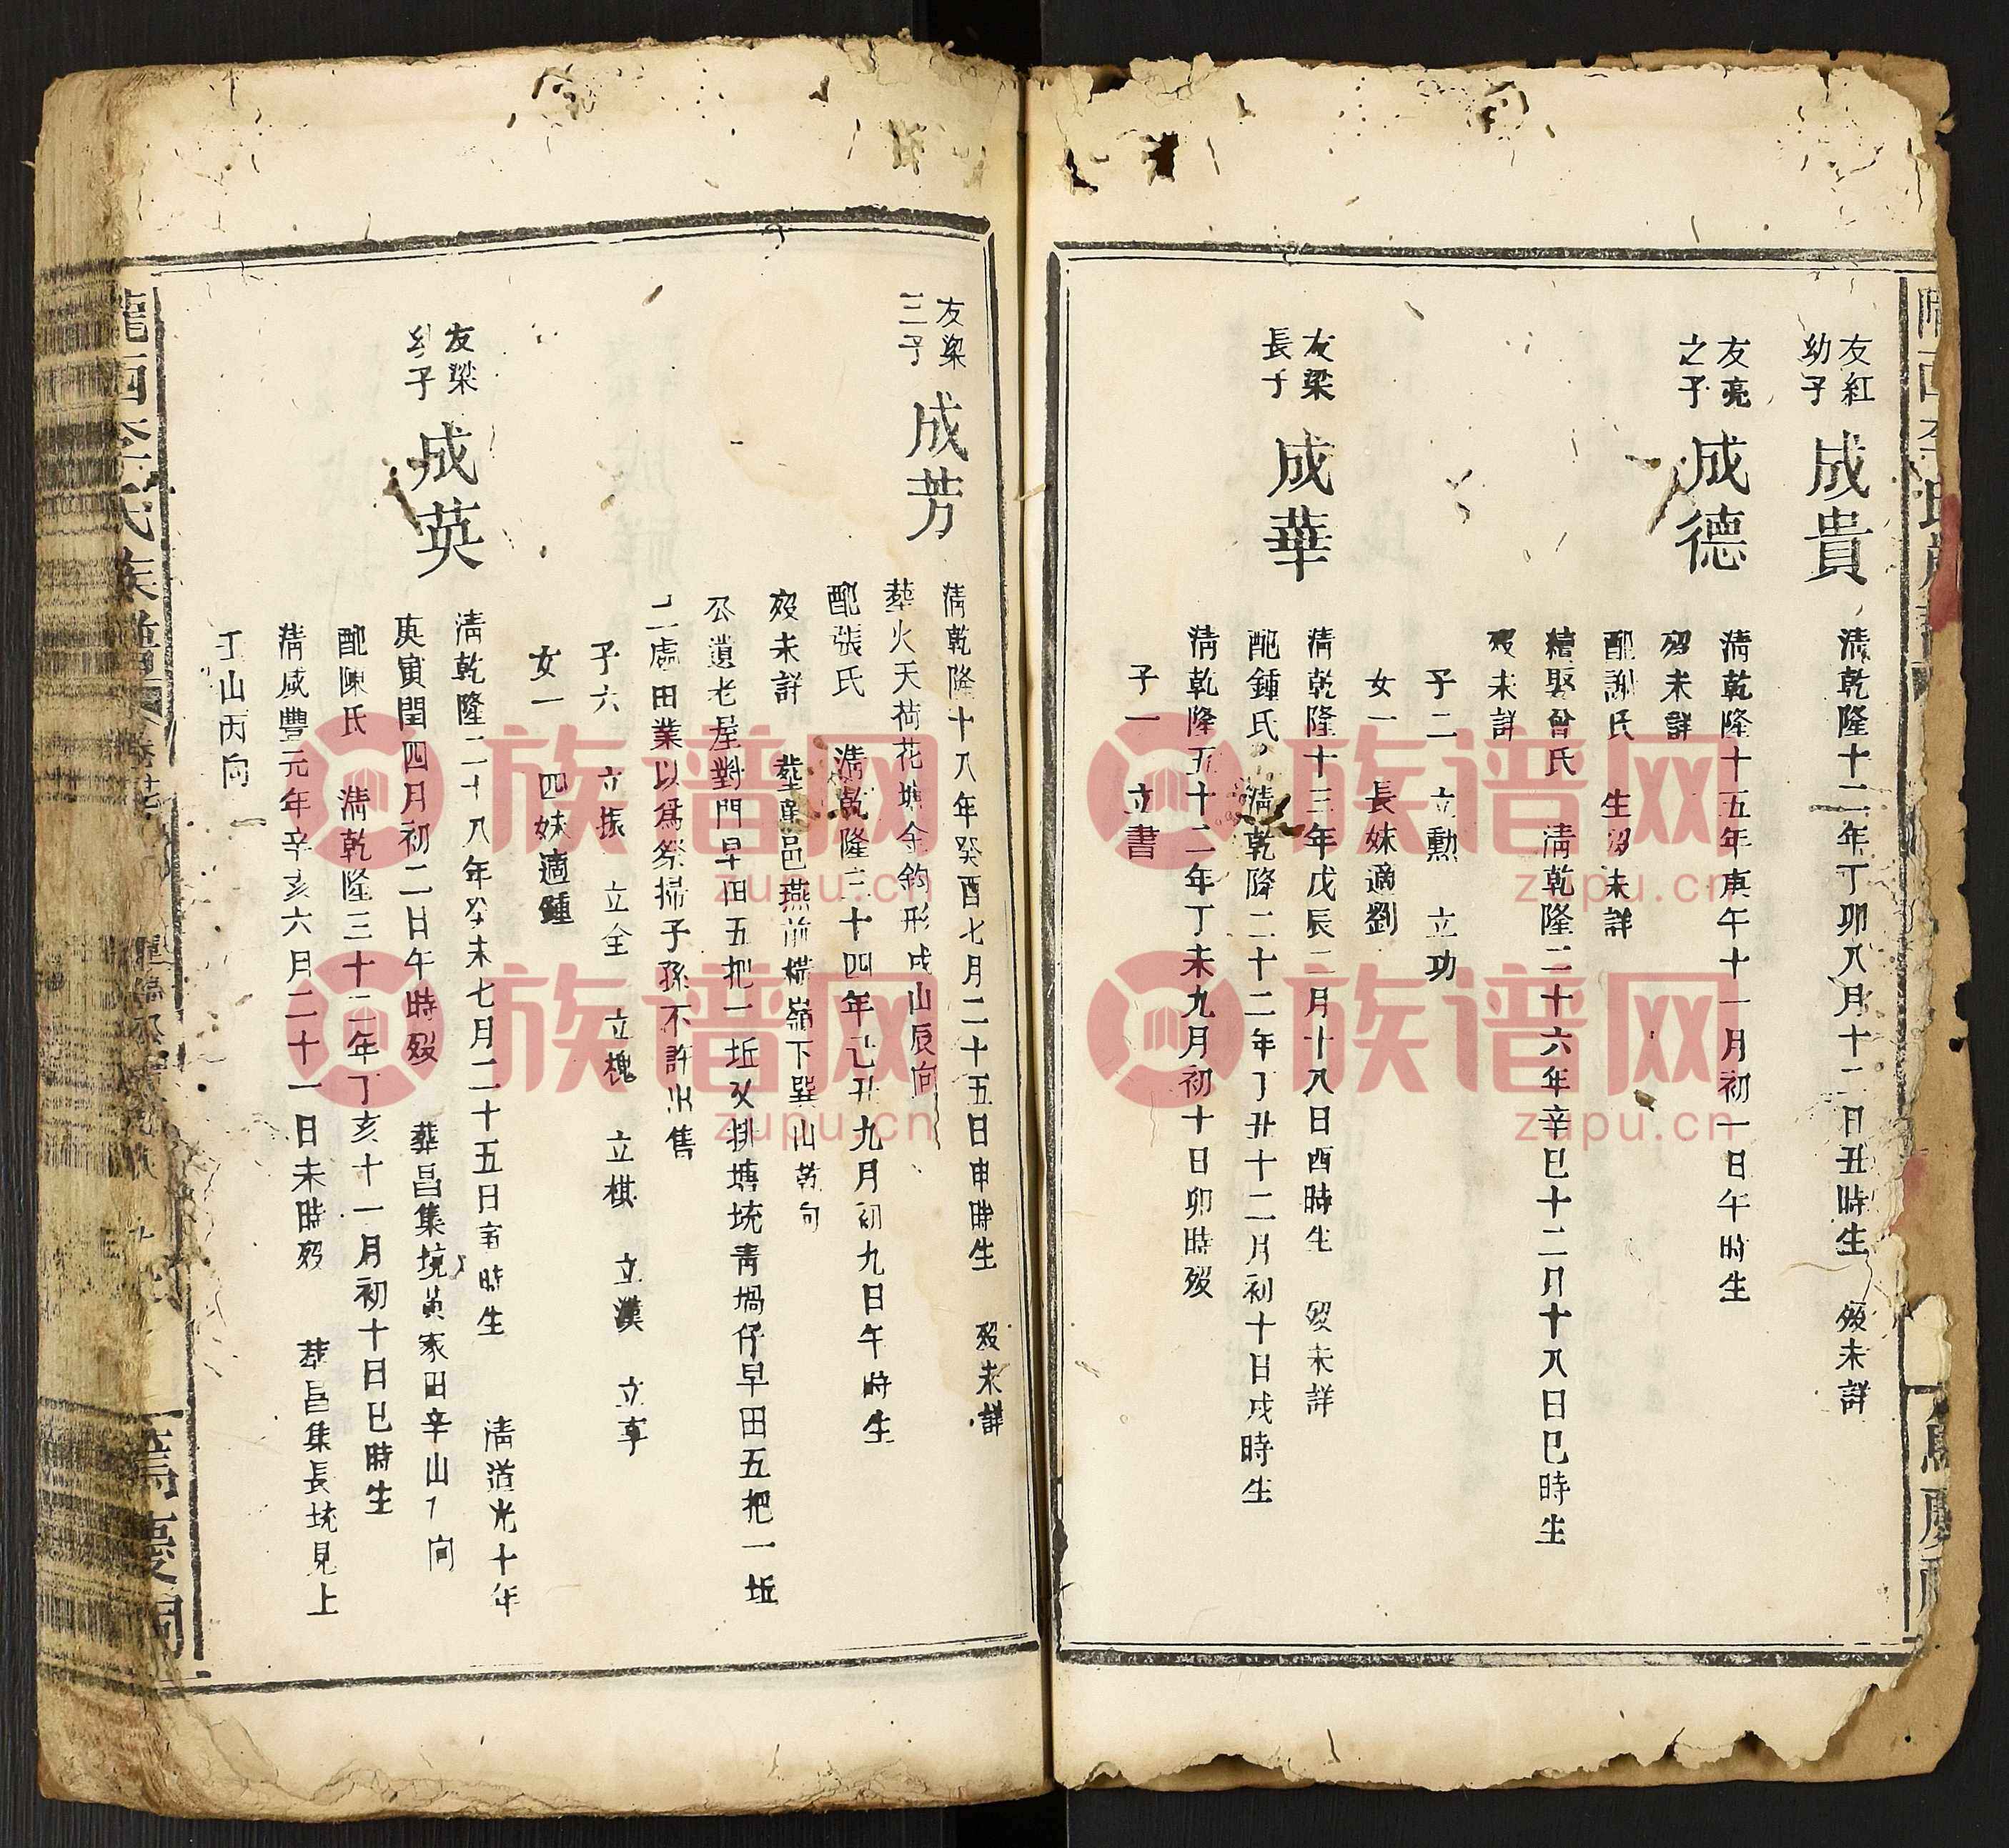 友紅
幼子
成貴
清乾隆十二年丁卯八月十二日丑時生 歿未詳
友亮
之子
成德
清乾隆十五年庚午十一月初一日午時生
歿未詳
配謝氏 生歿未詳
繼娶曾氏 清乾隆二十六年辛巳十二月十八日巳時生
歿未詳
子二 立勳 立功
女一 長妹適劉
友梁
長子
成華
清乾隆十三年戊辰二月十八日酉時生 歿未詳
配鍾氏 清乾隆二十二年丁丑十二月初十日戌時生
清乾隆五十二年丁未九月初十日卯時歿
子一 立書
友梁
三子
成芳
清乾隆十八年癸酉七月二十五日申時生 歿未詳
葬火天荷花塘金鈎形戌山辰向
配張氏 清乾隆三十四年己丑九月初九日午時生
歿未詳 葬萬邑燕前橫嶺下巽山乾向
公遺老屋對門早田五把一坵又排塘坑青堝仔早田五把一坵
二處田業以為祭掃子孫不許出售
子六 立振 立全 立槐 立棋 立漢 立享
女一 四妹適鍾
友梁
幼子
成英
清乾隆二十八年癸未七月二十五日 時生 清道光十年
庚寅閏四月初二日午時歿 葬昌集坑黃家田辛山 向
配陳氏 清乾隆三十二年丁亥十一月初十日巳時生
清咸豐元年辛亥六月二十一日未時歿 葬昌集長坑見上
山丙向
隴西李氏族譜
族谱网
zupu.cn
族谱网
zupu.cn
族谱网
zupu.cn
族谱网
zupu.cn